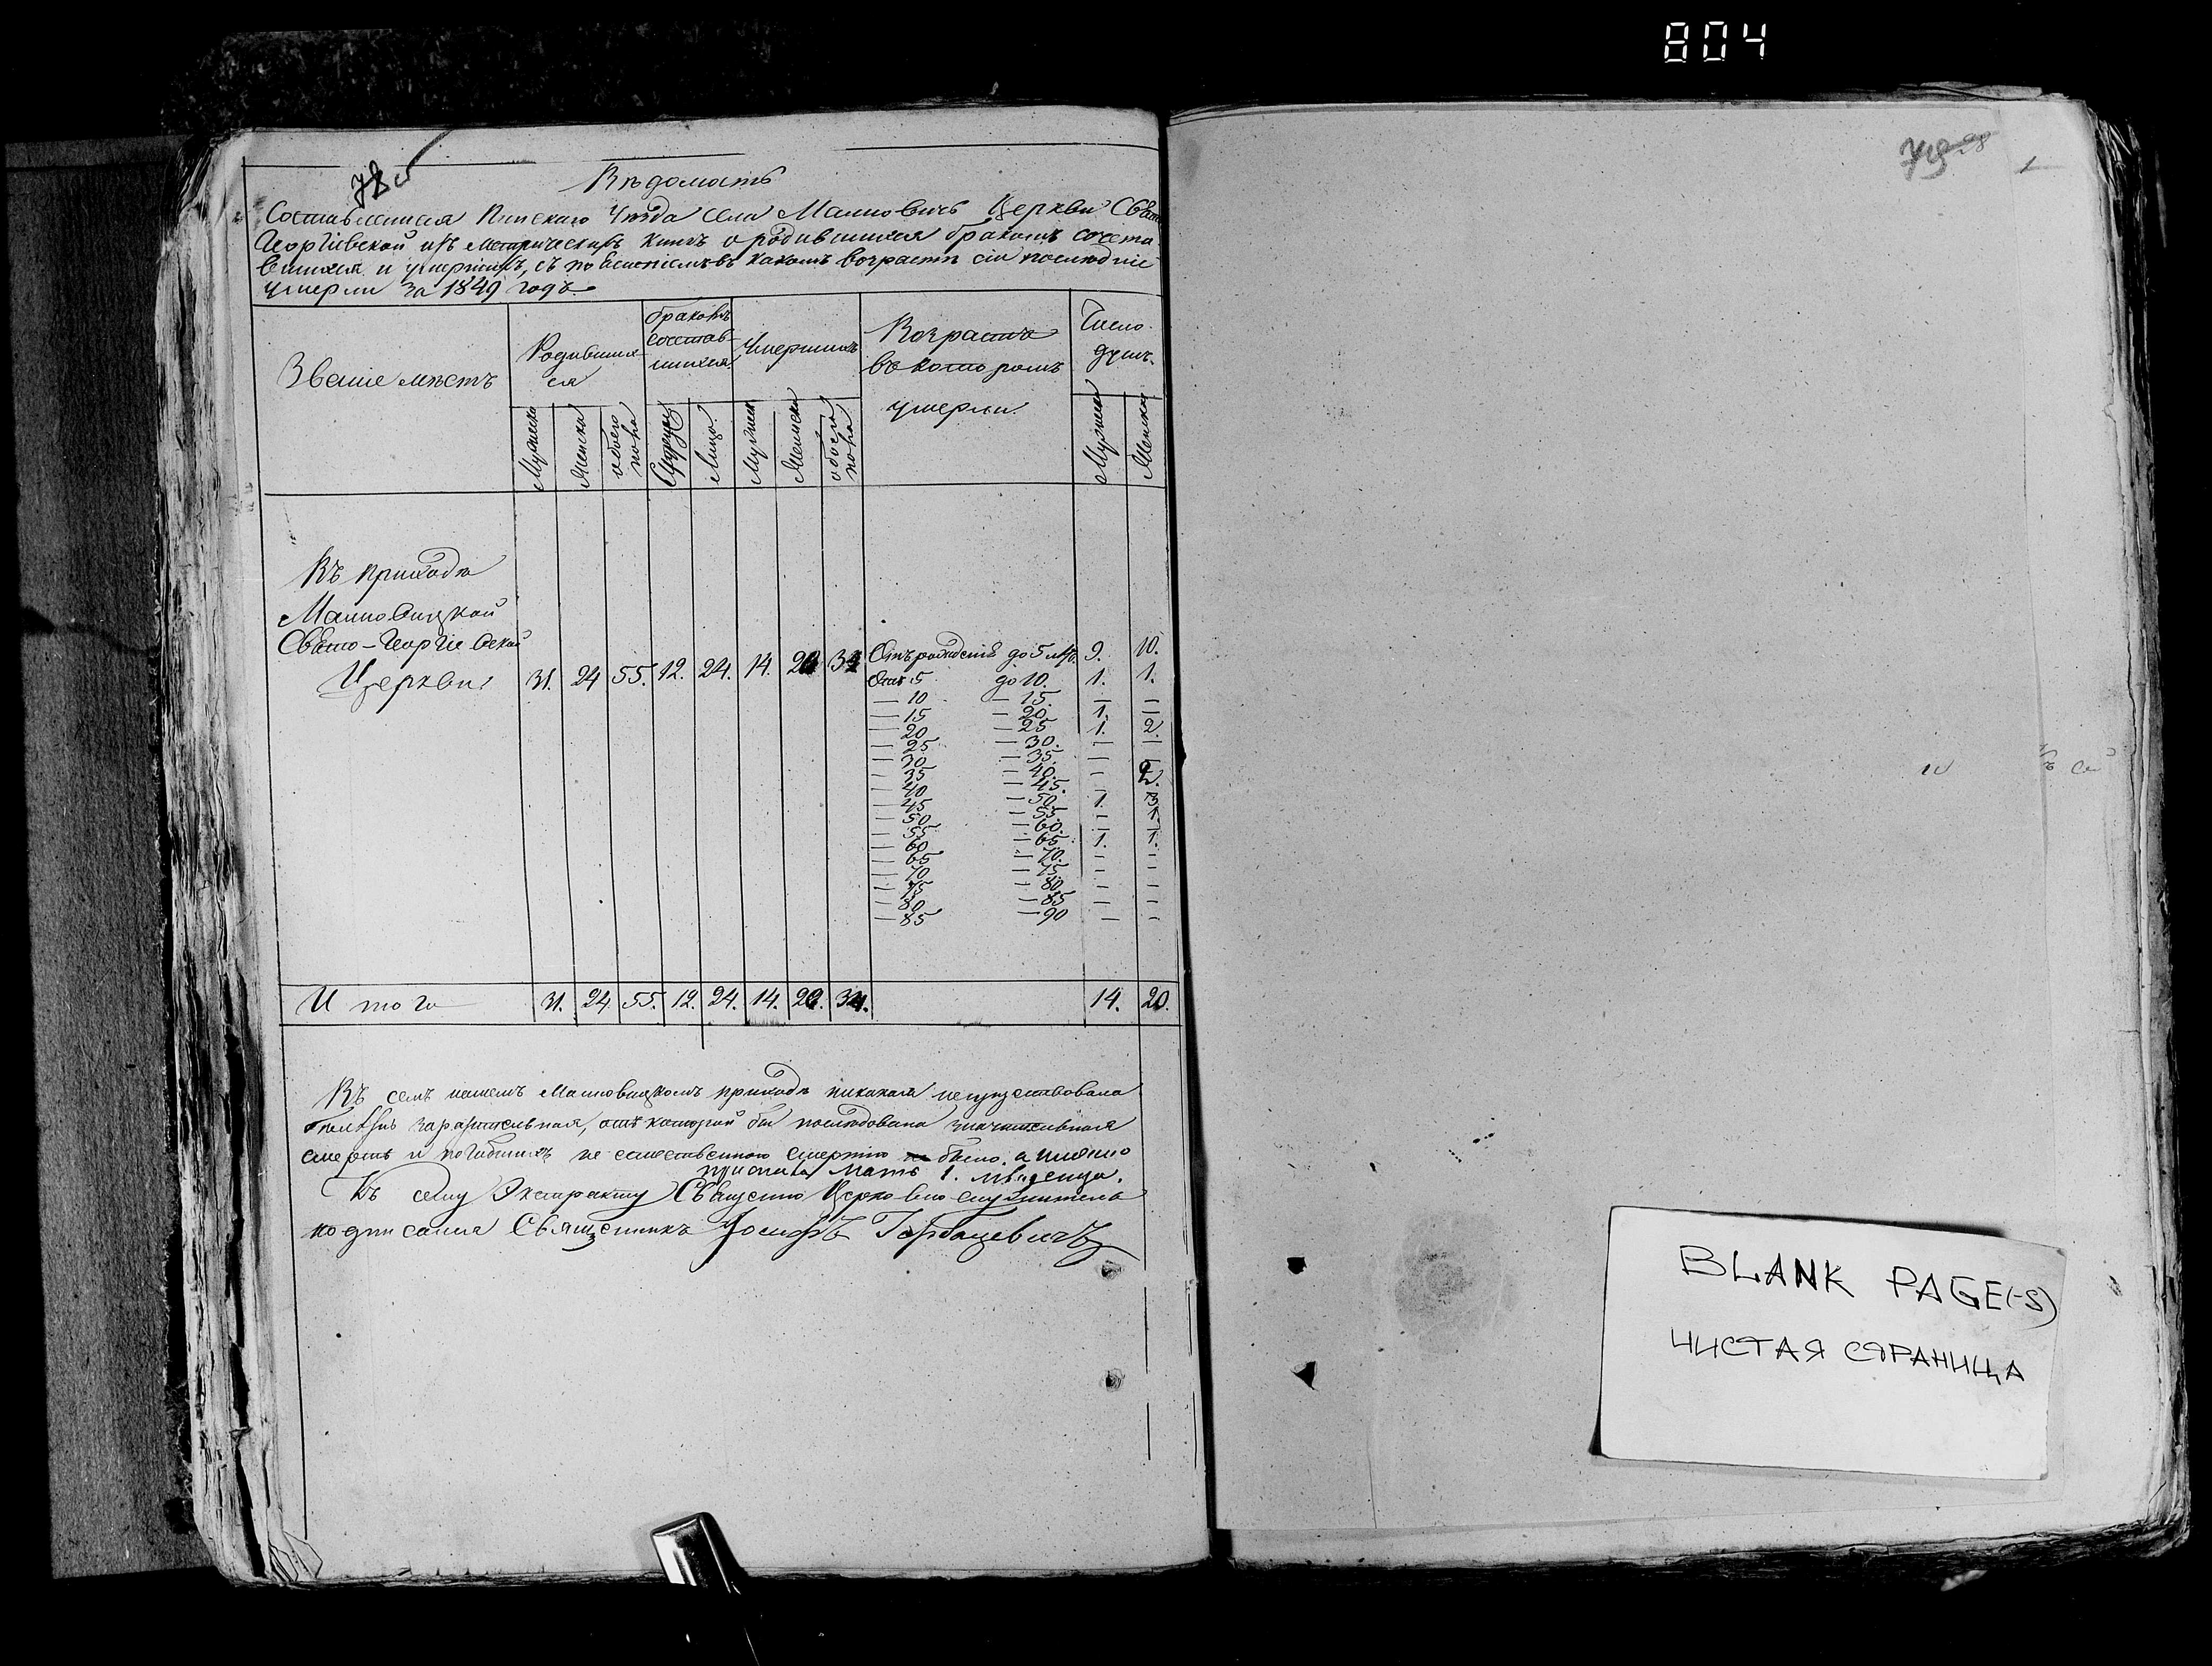 804
78
Вѣдомость
Составленная Пинскаго Уѣзда села Малковичъ Церкви Свято
Георгіевской изъ метрическихъ книгъ о родившихся бракомъ сочета
вшихся и умершихъ, съ поясненіемъ въ какомъ возрастѣ сіи послѣдніе
умерли за 1849 годъ.
Званіе мѣстъ
Родивших
ся
браковъ
сочетав-
шихся
Умершихъ
Возрастъ
въ которомъ
умерли
Число
душъ
Мужеска
Женска
обоего
пола
Лица
Мужеска
Женска
обоего
пола
Мужеска
Женска
Въ приходѣ
Свято-Георгіевской
Церкви
31. 24 55. 12. 24. 14. 20 34
Отъ рожденія до 5 лѣтъ 9. 10.
Отъ 5 до 10. 1. 1.
— 10 — 15. — —
— 15 — 20. 1. —
— 20 — 25 1. 2.
— 25 — 30. — —
— 30 — 35. —
— 35 — 40. — 2.
— 40 — 45.
— 45 — 50. 1. 3.
— 50 — 55. — 1.
— 55 — 60. — —
— 60 — 65. 1. 1.
— 65 — 70. – –
— 70 — 75. – –
— 75 — 80. – –
— 80 — 85 – –
— 85 — 90 — –
Итого 31. 24 55. 12. 24. 14. 20. 34. 14. 20.
Въ семъ нашемъ приходѣ никакая несуществовала
болѣзнь заразительная, отъ которой бы послѣдовала значительная
смерть и погибшихъ не естественною смертію было. а именно
приспала мать 1. младенца.
Къ сему Экстракту Священно Церковно служитель
подписался Священникъ Іосифъ Горбацевичъ
BLANK PAGE(-S)
ЧИСТАЯ СТРАНИЦА